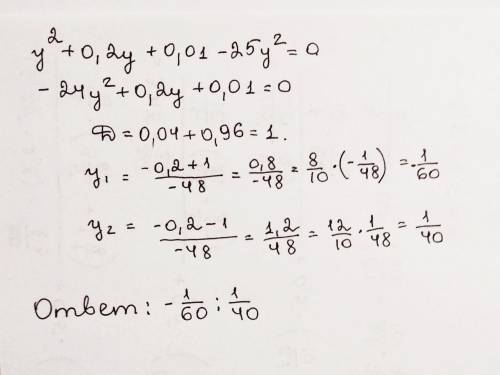 y² + 0,2y + 0,01 - 25y² = 0
- 24y² + 0,2y + 0,01 = 0
D = 0,04 + 0,96 = 1.
y₁ = (-0,2 + 1)/(-48) = 0,8/(-48) = 8/10 · (-1/48) = -1/60
y₂ = (-0,2 - 1)/(-48) = 1,2/48 = 12/10 · 1/48 = 1/40
Ответ: - 1/60 ; 1/40